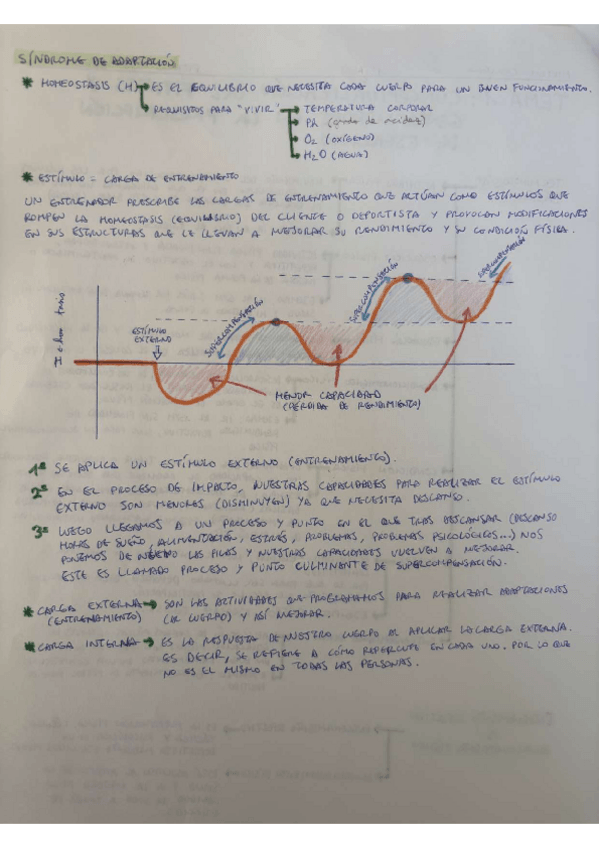 SÍNDROME DE ADAPTACIÓN
* HOMEOSTASIS (H) → ES EL EQUILIBRIO QUE NECESITA CADA CUERPO PARA UN BUEN FUNCINAMIENTO.
→ REQUISITOS PARA "VIVIR" → TEMPERATURA CORPORAL
→ PH (grado de acidez)
→ O2 (OXÍGENO)
→ H2O (AGUA)
* ESTÍMULO = CARGA DE ENTRENAMIENTO
UN ENTRENADOR PRESCRIBE LAS CARGAS DE ENTRENAMIENTO QUE ACTÚAN COMO ESTÍMULOS QUE
ROMPEN LA HOMEOSTASIS (EQUILIBRIO) DEL CLIENTE O DEPORTISTA Y PROVOCAN MODIFICACIONES
EN SUS ESTRUCTURAS QUE LE LLEVAN A MEJORAR SU RENDIMIENTO Y SU CONDICIÓN FÍSICA.
SUPERCOMPENSACIÓN
SUPERCOMPENSACIÓN
SUPERCOMPENSACIÓN
ESTÍMULO
EXTERNO
MENOR CAPACIDAD
(PÉRDIDA DE RENDIMIENTO)
1º SE APLICA UN ESTÍMULO EXTERNO (ENTRENAMIENTO).
2º EN EL PROCESO DE IMPACTO, NUESTRAS CAPACIDADES PARA REALIZAR EL ESTÍMULO
EXTERNO SON MENORES (DISMINUYEN) YA QUE NECESITA DESCANSO.
3º LUEGO LLEGAMOS A UN PROCESO Y PUNTO EN EL QUE TRAS DESCANSAR (DESCANSO
HORAS DE SUEÑO, ALIMENTACIÓN, ESTRÉS, PROBLEMAS, PROBLEMAS PSICOLÓGICOS...) NOS
PONEMOS DE NUEVO LAS PILAS Y NUESTRAS CAPACIDADES VUELVEN A MEJORAR.
ESTE ES LLAMADO PROCESO Y PUNTO CULMINANTE DE SUPERCOMPENSACIÓN.
* CARGA EXTERNA → SON LAS ACTIVIDADES QUE PROGRAMAMOS PARA REALIZAR ADAPTACIONES
(ENTRENAMIENTO) (AL CUERPO) Y ASÍ MEJORAR.
* CARGA INTERNA → ES LA RESPUESTA DE NUESTRO CUERPO AL APLICAR LA CARGA EXTERNA.
ES DECIR, SE REFIERE A CÓMO REPERCUTE EN CADA UNO. POR LO QUE
NO ES EL MISMO EN TODAS LAS PERSONAS.